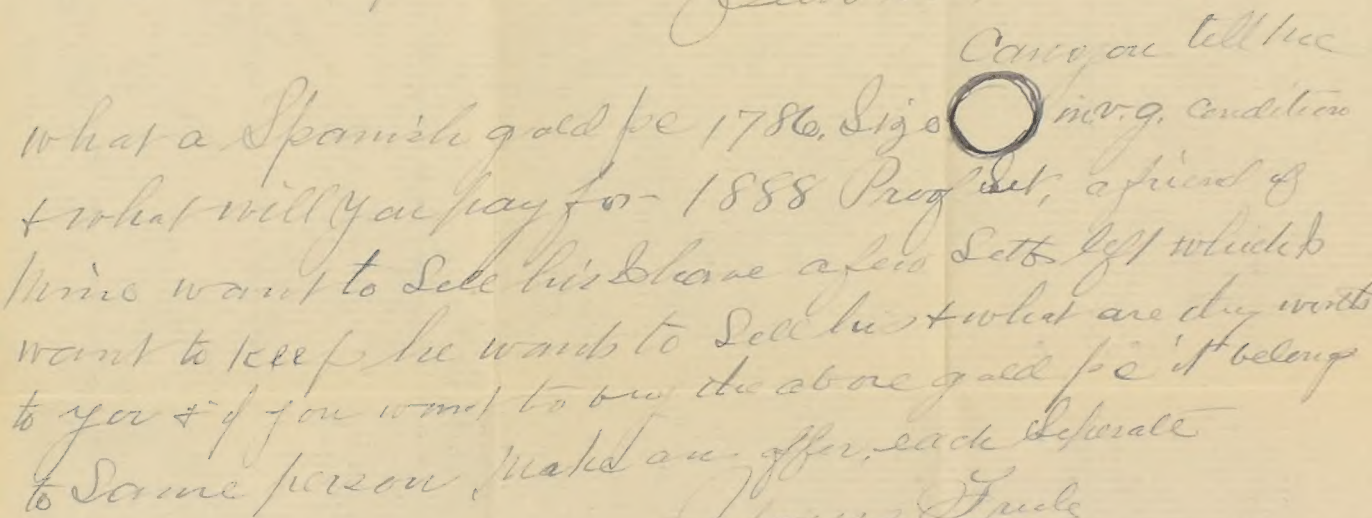 Can you tell me
what a Spanish gold pc 1786. Size in v.g. condition
& what will you pay for 1888 Proof Set, a friend of
mine want to sell his I have a few Setts left which I
want to keep he wants to Sell his & what are they worth
to you & if you want to buy the above gold pc it belong
to Same person, make an offer, each Seperate
Yours Truly